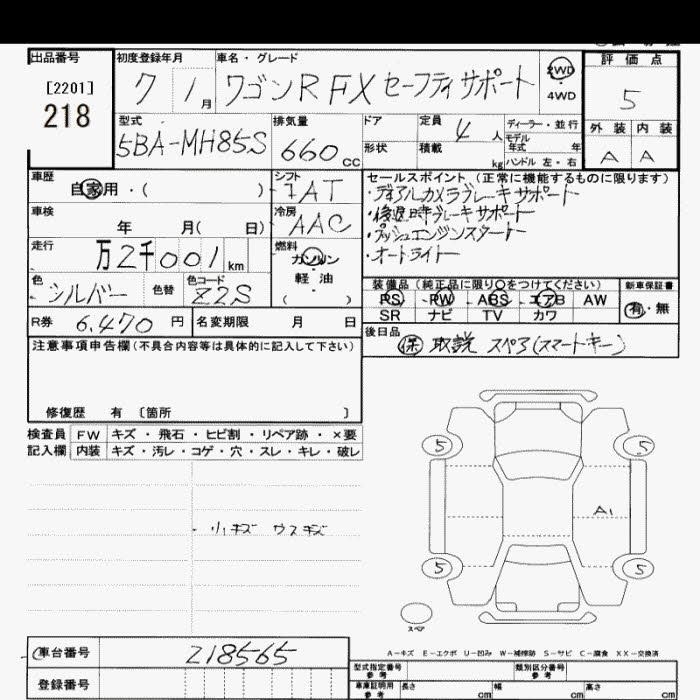 出品番号
[2201]
218
初度登録年月
7 1月
車名・グレード
ワゴンR FX セーフティサポート
2WD
4WD
評価点
5
外装 内装
A A
型式
5BA-MH85S
排気量
660cc
ドア
形状
定員 4人
積載 kg
ディーラー・並行
モデル年式 年
ハンドル 左・右
車歴
自家用・( )
シフト
7AT
セールスポイント(正常に機能するものに限ります)
・ディアルカメラブレーキサポート
・後退時ブレーキサポート
・プッシュエンジンスタート
・オートライト
車検
年 月( 日)
冷房
AAC
走行
万2千001km
燃料
ガソリン
・
軽油
( )
色
シルバー
色替
色コード
Z2S
装備品(純正品に限り○をつけてください)
PS PW ABS エアB AW
SR ナビ TV カワ
新車保証書
有・無
R券 6,470円
名変期限 月 日
後日品
保 取説 スペア(スマートキー)
注意事項申告欄(不具合内容等は具体的に記入して下さい)
修復歴 有 〔箇所 〕
検査員記入欄
FW キズ・飛石・ヒビ割・リペア跡・×要
内装 キズ・汚レ・コゲ・穴・スレ・キレ・破レ
・小キズ ウスキズ
5 5
A1
5 5
スペア
A-キズ E-エクボ U-凹み W-補修跡 S-サビ C-腐食 XX-交換済
車台番号 218565
登録番号
型式指定番号 参考
類別区分番号 参考
車庫証明用 参考
長さ cm 幅 cm 高さ cm